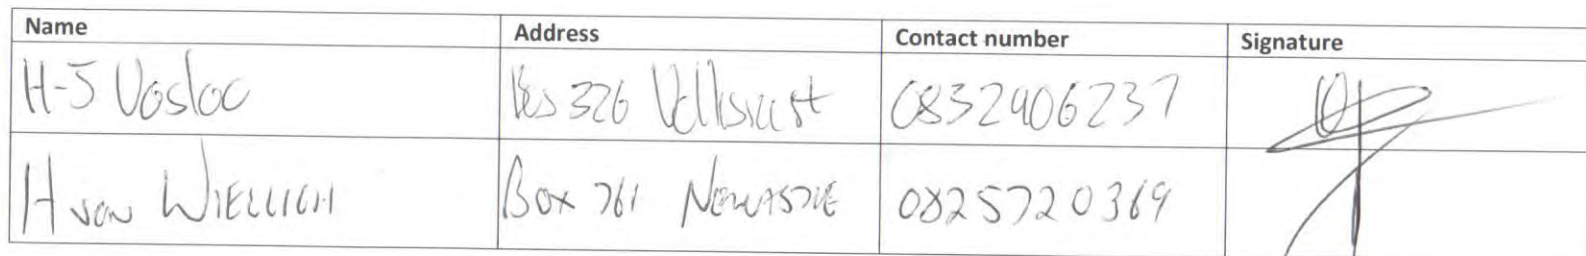 Name Address Contact number Signature
H-J Vosloo Bus 326 Volksrust 0832906237
H von WIELLIGH Box 761 NEWCASTLE 0825720369